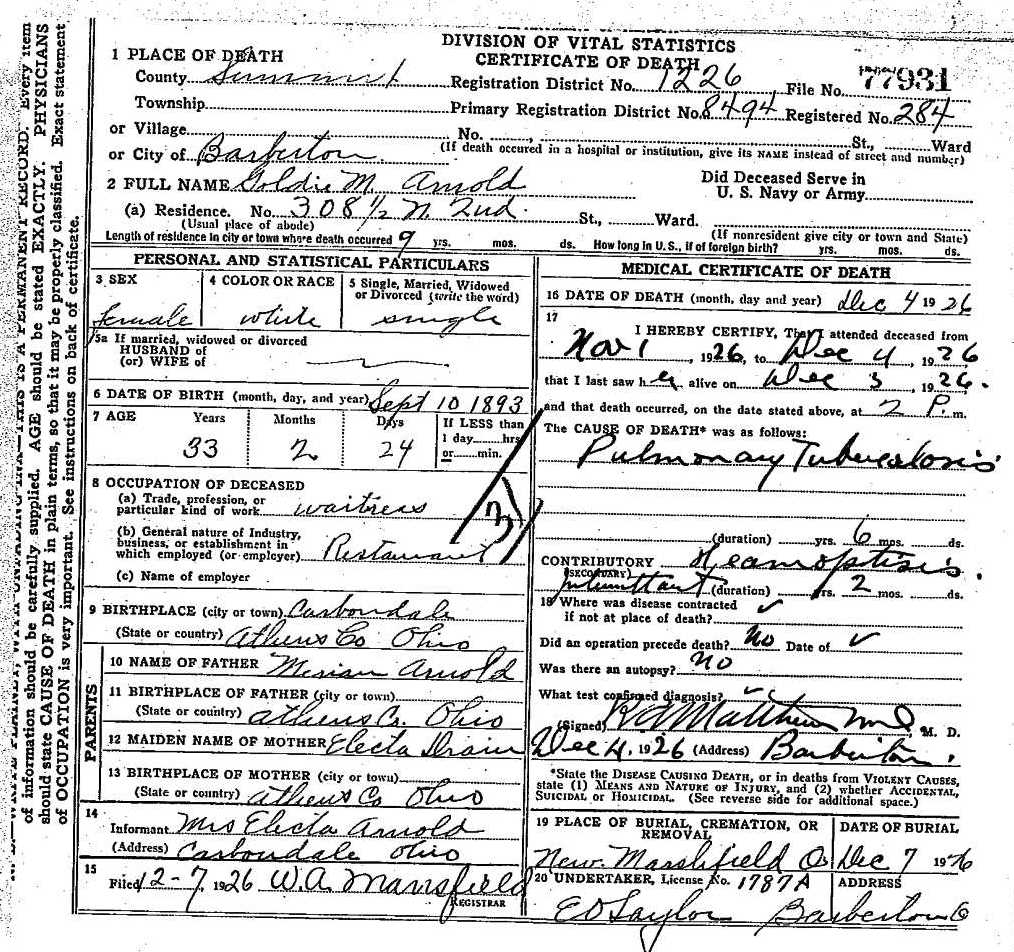 DIVISION OF VITAL STATISTICS
CERTIFICATE OF DEATH
1 PLACE OF DEATH
County Summit Registration District No. 1226 File No. 77931
Township Primary Registration District No. 8494 Registered No. 284
or Village No. , St., Ward
or City of Barberton (If death occured in a hospital or institution, give its NAME instead of street and number)
2 FULL NAME Goldie M. Arnold Did Deceased Serve in
U. S. Navy or Army
(a) Residence. No. 308 1/2 N. 2nd. St., Ward.
(Usual place of abode) (If nonresident give city or town and State)
Length of residence in city or town where death occurred 9 yrs. mos. ds. How long in U. S., if of foreign birth? yrs. mos. ds.
PERSONAL AND STATISTICAL PARTICULARS
3 SEX 4 COLOR OR RACE 5 Single, Married, Widowed
or Divorced (write the word)
female white single
5a If married, widowed or divorced
HUSBAND of
(or) WIFE of
6 DATE OF BIRTH (month, day, and year) Sept 10 1893
7 AGE Years Months Days If LESS than
1 day hrs.
or min.
33 2 24
8 OCCUPATION OF DECEASED
(a) Trade, profession, or
particular kind of work waitress
(b) General nature of Industry,
business, or establishment in
which employed (or employer) Restaurant
(c) Name of employer
31
9 BIRTHPLACE (city or town) Carbondale
(State or country) Athens Co Ohio
PARENTS
10 NAME OF FATHER Arnold
11 BIRTHPLACE OF FATHER (city or town)
(State or country) Athens Co. Ohio
12 MAIDEN NAME OF MOTHER Electa Drain
13 BIRTHPLACE OF MOTHER (city or town)
(State or country) Athens Co Ohio
14
Informant Mrs Electa Arnold
(Address) Carbondale Ohio
15
Filed 12-7, 1926 W.A. Mansfield
REGISTRAR
MEDICAL CERTIFICATE OF DEATH
16 DATE OF DEATH (month, day and year) Dec 4 1926
17
I HEREBY CERTIFY, That I attended deceased from
Nov 1, 1926, to Dec 4, 1926
that I last saw her alive on Dec 3, 1926.
and that death occurred, on the date stated above, at 2 P. m.
The CAUSE OF DEATH* was as follows:
Pulmonary Tuberculosis
(duration) yrs. 6 mos. ds.
CONTRIBUTORY Heamoptisis.
(SECONDARY)
(duration) yrs. 2 mos. ds.
18 Where was disease contracted
if not at place of death?
Did an operation precede death? No Date of
Was there an autopsy? No
What test confirmed diagnosis?
(Signed) M. D.
Dec 4, 1926 (Address) Barberton.
*State the DISEASE CAUSING DEATH, or in deaths from VIOLENT CAUSES,
state (1) MEANS AND NATURE OF INJURY, and (2) whether ACCIDENTAL,
SUICIDAL or HOMICIDAL. (See reverse side for additional space.)
19 PLACE OF BURIAL, CREMATION, OR
REMOVAL
DATE OF BURIAL
New Marshfield O. Dec 7 1926
20 UNDERTAKER, License No. 1787A ADDRESS
E D Taylor Barberton O
THIS IS A PERMANENT RECORD. Every item
of information should be carefully supplied. AGE should be stated EXACTLY. PHYSICIANS
should state CAUSE OF DEATH in plain terms, so that it may be properly classified. Exact statement
of OCCUPATION is very important. See instructions on back of certificate.